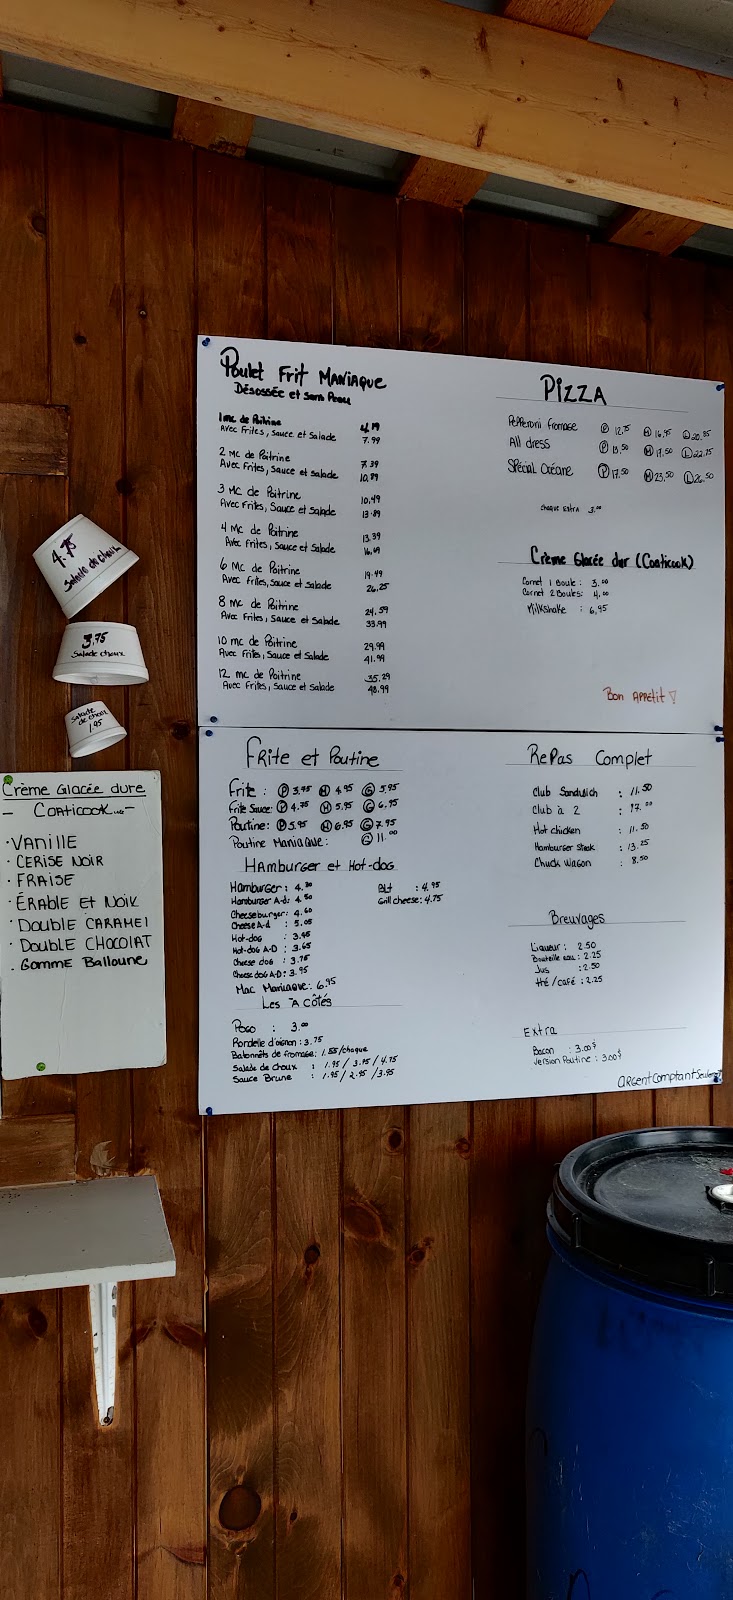 Poulet Frit Maniaque
Désossée et sans Peau
1 mc de Poitrine 4.19
Avec Frites, Sauce et Salade 7.99
2 mc de Poitrine 7.39
Avec Frites, Sauce et Salade 10.89
3 mc de Poitrine 10.49
Avec Frites, Sauce et Salade 13.89
4 mc de Poitrine 13.39
Avec Frites, Sauce et Salade 16.69
6 mc de Poitrine 19.49
Avec Frites, Sauce et Salade 26.25
8 mc de Poitrine 24.59
Avec Frites, Sauce et Salade 33.99
10 mc de Poitrine 29.99
Avec Frites, Sauce et Salade 41.99
12 mc de Poitrine 35.29
Avec Frites, Sauce et Salade 48.99
Pizza
Pepperoni fromage P 12.75 M 16.95 L 20.95
All dress P 13.50 M 17.50 L 22.75
Spécial Océane P 17.50 M 23.50 L 26.50
Chaque Extra 3.00
Crème Glacée dur (Coaticook)
Cornet 1 Boule : 3.00
Cornet 2 Boules : 4.00
Milkshake : 6.95
Bon Appétit
4.75
Salade de choux
3.75
Salade choux
Salade
de choux
1.95
Crème Glacée dure
- Coaticook -
· Vanille
· Cerise Noir
· Fraise
· Érable et Noix
· Double Caramel
· Double Chocolat
· Gomme Balloune
Frite et Poutine
Frite : P 3.95 M 4.95 G 5.95
Frite Sauce : P 4.75 M 5.95 G 6.95
Poutine : P 5.95 M 6.95 G 7.95
Poutine Maniaque : G 11.00
Hamburger et Hot-dog
Hamburger : 4.20
Hamburger A-d : 4.50
Cheeseburger : 4.60
Cheese A-d : 5.05
Hot-dog : 3.45
Hot-dog A-D : 3.65
Cheese dog : 3.75
Cheese dog A-D : 3.95
Mac Maniaque : 6.95
Blt : 4.95
Grill cheese : 4.75
Les À Côtés
Pogo : 3.00
Rondelle d'oignon : 3.75
Batonnêts de fromage : 1.55/chaque
Salade de choux : 1.95 / 3.75 / 4.75
Sauce Brune : 1.95 / 2.95 / 3.95
Repas Complet
Club Sandwich : 11.50
Club à 2 : 17.00
Hot chicken : 11.50
Hamburger Steak : 13.25
Chuck Wagon : 8.50
Breuvages
Liqueur : 2.50
Bouteille eau : 2.25
Jus : 2.50
thé / café : 2.25
Extra
Bacon : 3.00$
Version Poutine : 3.00$
Argent Comptant Seulement